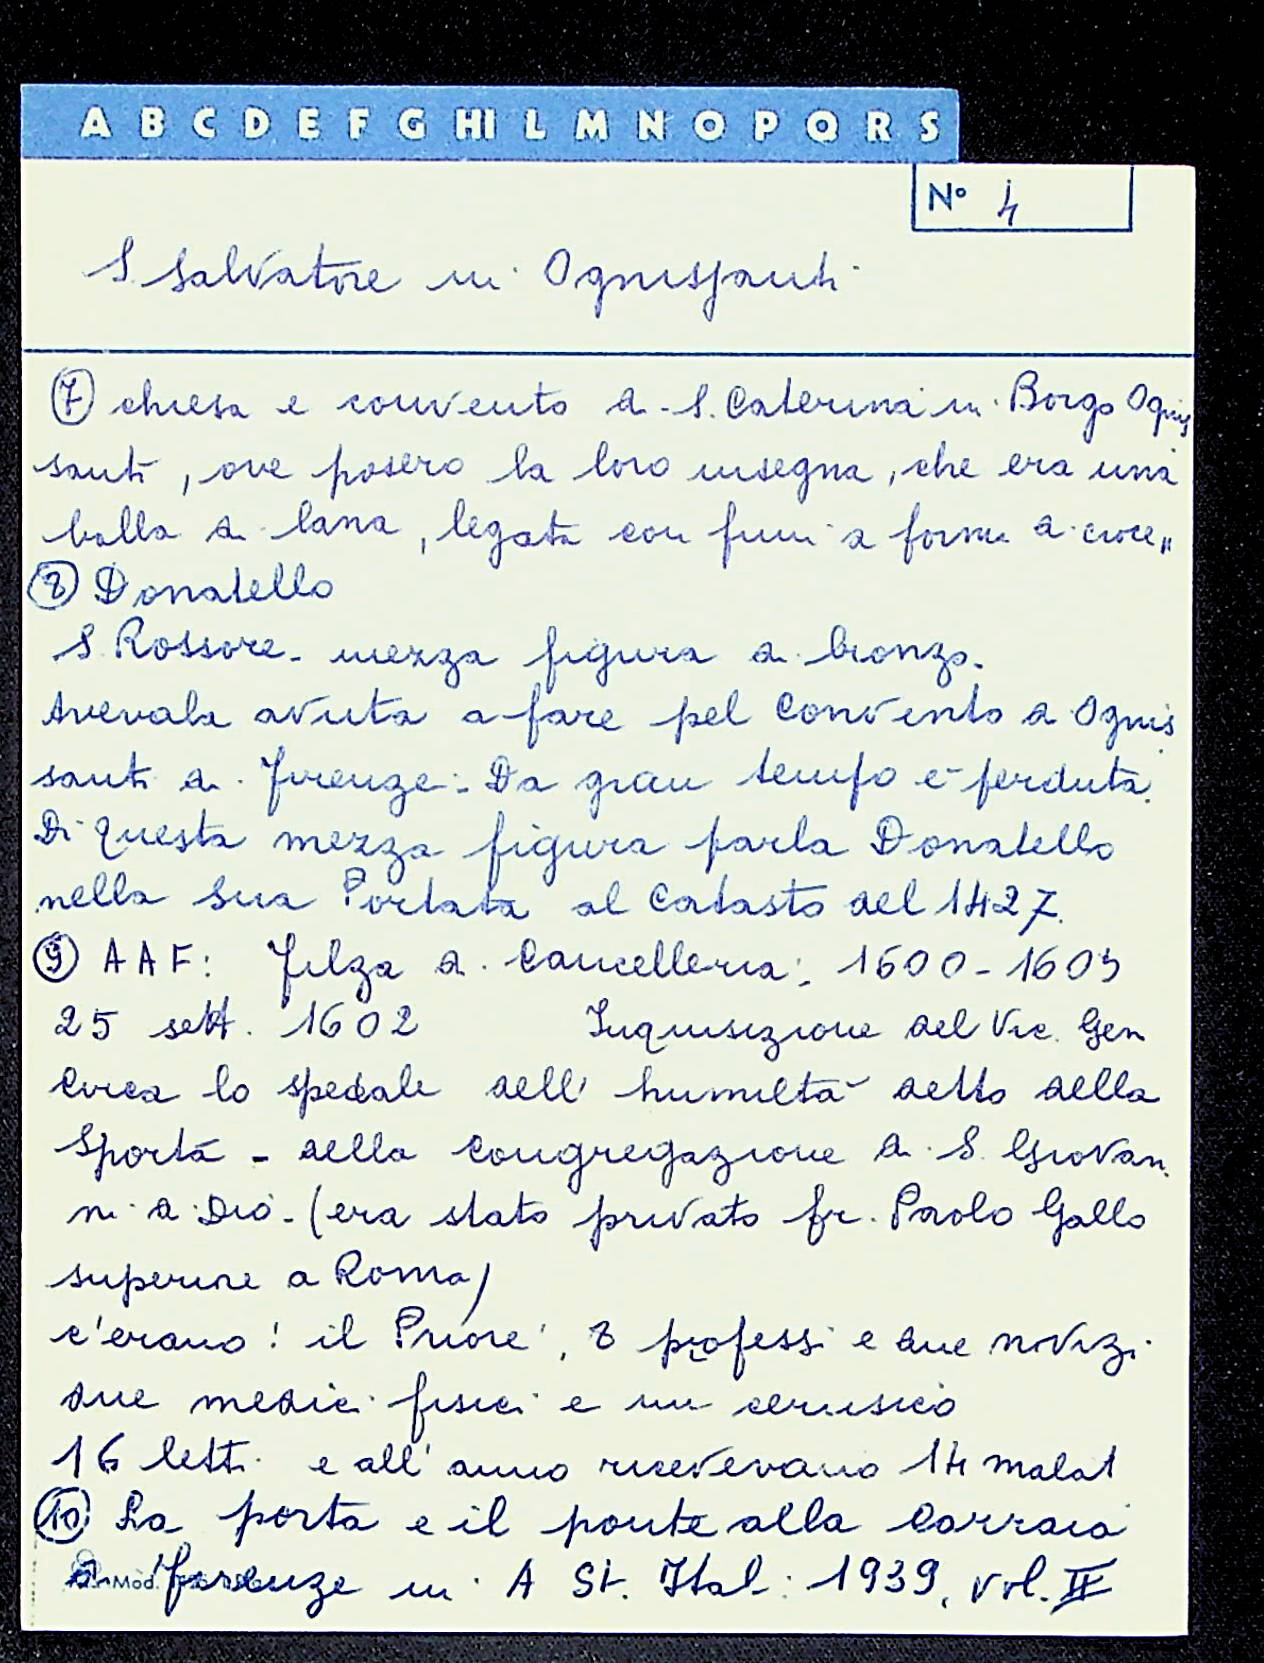 A B C D E F G HI L M N O P Q R S
N° 4
S. Salvatore in Ognissanti
(7) chiesa e convento di S. Caterina in Borgo Ognis
santi, ove posero la loro insegna, che era una
balla di lana, legata con funi a forma di croce,,
(8) Donatello
S. Rossore - mezza figura di bronzo.
Avevala avuta a fare pel Convento di Ognis
santi di Firenze. Da gran tempo è perduta.
Di questa mezza figura parla Donatello
nella sua Portata al Catasto del 1427.
(9) AAF: Filza di Cancelleria: 1600-1603
25 sett. 1602 Inquisizione del Vic. Gen
circa lo spedale dell' humiltà detto della
Sporta - della Congregazione di S. Giovan
ni di Dio - (era stato privato fr. Paolo Gallo
superiore a Roma)
c'erano: il Priore, 8 professi e due novizi
due medici fisici e un cerusico
16 letti e all' anno ricevevano 14 malat
(10) La porta e il ponte alla Carraia
di Firenze in A St. Ital: 1939, vol. II
Mod.